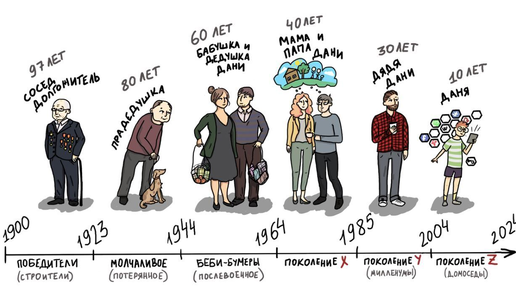 97 ЛЕТ
СОСЕД
ДОЛГОЖИТЕЛЬ
80 ЛЕТ
ПРАДЕДУШКА
60 ЛЕТ
БАБУШКА И
ДЕДУШКА
ДАНИ
40 ЛЕТ
МАМА И
ПАПА ДАНИ
30 ЛЕТ
ДЯДЯ
ДАНИ
10 ЛЕТ
ДАНЯ
1900
1923
1944
1964
1985
2004
ПОБЕДИТЕЛИ
(СТРОИТЕЛИ)
МОЛЧАЛИВОЕ
(ПОТЕРЯННОЕ)
БЕБИ-БУМЕРЫ
(ПОСЛЕВОЕННОЕ)
ПОКОЛЕНИЕ X
ПОКОЛЕНИЕ Y
(МИЛЛЕНИУМЫ)
ПОКОЛЕНИЕ Z
(ДОМОСЕДЫ)